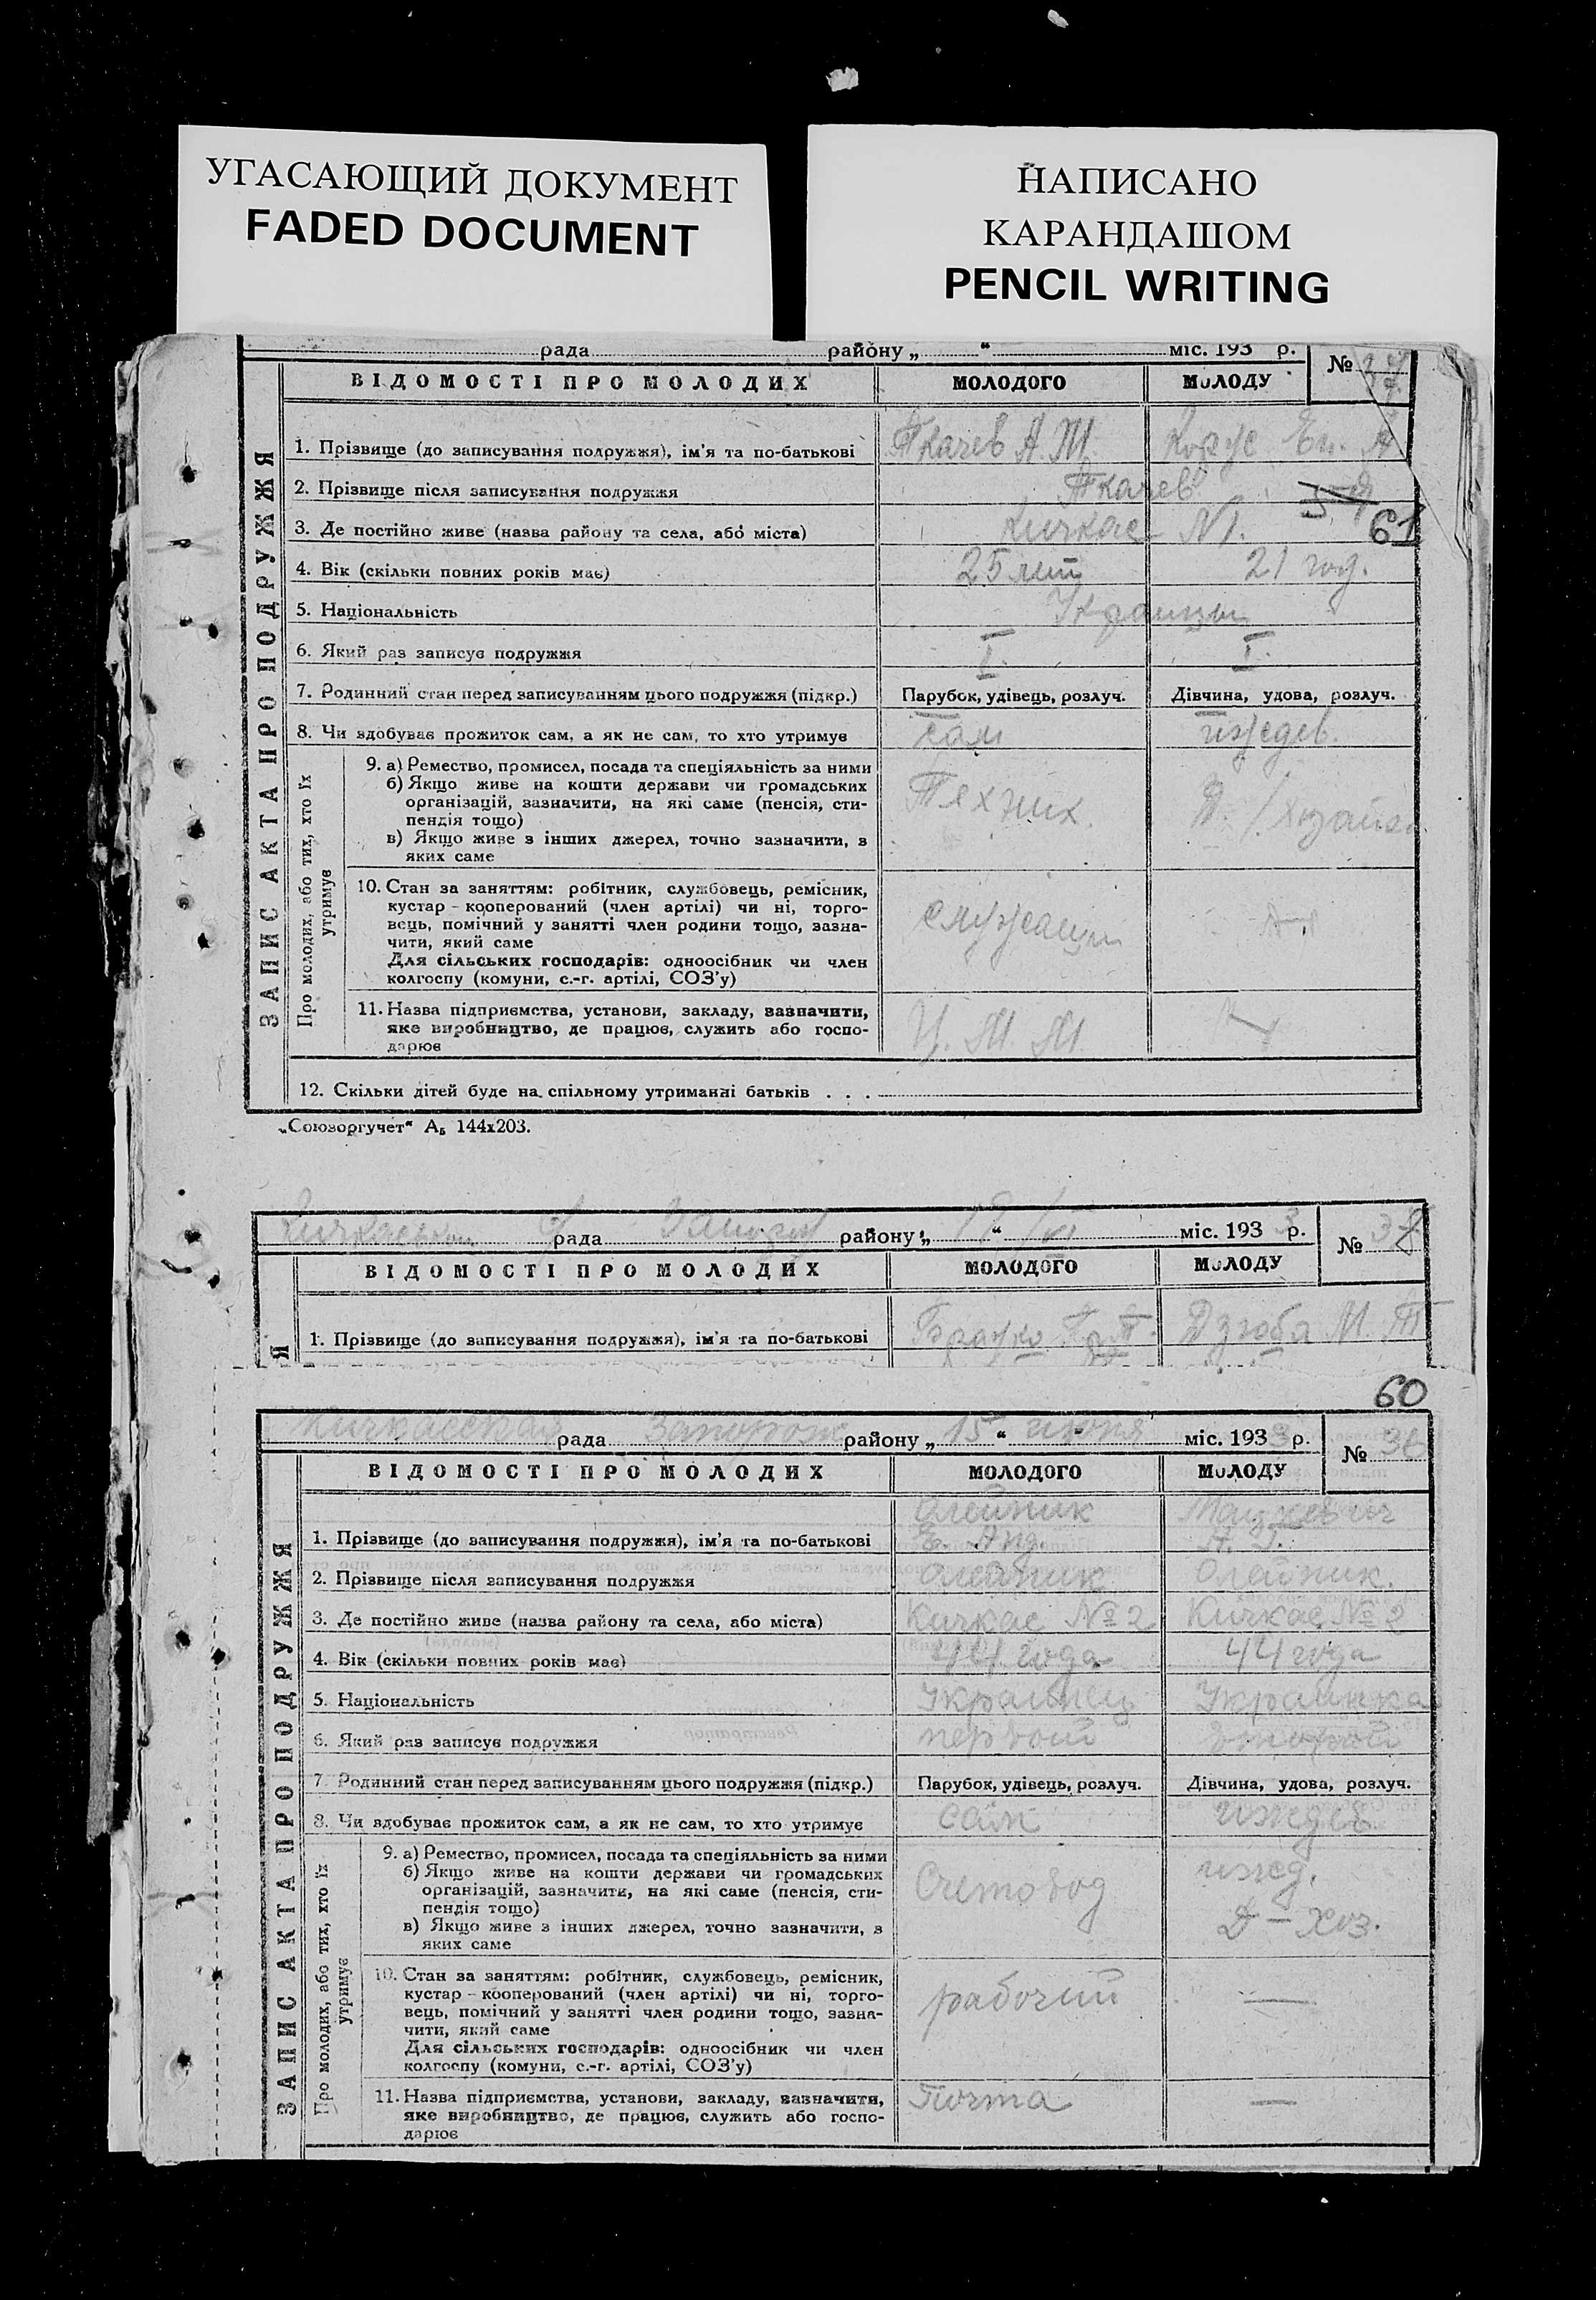 УГАСАЮЩИЙ ДОКУМЕНТ
FADED DOCUMENT
НАПИСАНО
КАРАНДАШОМ
PENCIL WRITING
рада району „ “ міс. 193 р. №
ВІДОМОСТІ ПРО МОЛОДИХ МОЛОДОГО МОЛОДУ
ЗАПИС АКТА ПРО ПОДРУЖЖЯ
1. Прізвище (до записування подружжя), ім'я та по-батькові Ткачев А. М. Ен. А
2. Прізвище після записування подружжя Ткачев
3. Де постійно живе (назва району та села, або міста) Кичкас N1. 61
4. Вік (скільки повних років має) 25 лет 21 год.
5. Національність Украинцы
6. Який раз записує подружжя I. I.
7. Родинний стан перед записуванням цього подружжя (підкр.) Парубок, удівець, розлуч. Дівчина, удова, розлуч.
8. Чи здобуває прожиток сам, а як не сам, то хто утримує сам иждев.
Про молодих, або тих, хто їх утримує
9. а) Ремество, промисел, посада та спеціяльність за ними
б) Якщо живе на кошти держави чи громадських
організацій, зазначити, на які саме (пенсія, сти-
пендія тощо)
в) Якщо живе з інших джерел, точно зазначити, з
яких саме
Техник. Д.
10. Стан за заняттям: робітник, службовець, ремісник,
кустар - кооперований (член артілі) чи ні, торго-
вець, помічний у занятті член родини тощо, зазна-
чити, який саме
Для сільських господарів: одноосібник чи член
колгоспу (комуни, с.-г. артілі, СОЗ'у)
служащий
11. Назва підприємства, установи, закладу, зазначити,
яке виробництво, де працює, служить або госпо-
дарює
Ц. М. М.
12. Скільки дітей буде на спільному утриманні батьків . . .
„Союзоргучет“ А₅ 144х203.
рада району „ 19/VI “ міс. 193 3 р. № 38
ВІДОМОСТІ ПРО МОЛОДИХ МОЛОДОГО МОЛОДУ
Я
1. Прізвище (до записування подружжя), ім'я та по-батькові Дзюба М. Т
60
Кичкасская рада Запорож району „ 15 “ июня міс. 193 3 р. № 36
ВІДОМОСТІ ПРО МОЛОДИХ МОЛОДОГО МОЛОДУ
ЗАПИС АКТА ПРО ПОДРУЖЖЯ
Олейник Мацкевич
1. Прізвище (до записування подружжя), ім'я та по-батькові Е. Анд.
2. Прізвище після записування подружжя Олейник Олейник.
3. Де постійно живе (назва району та села, або міста) Кичкас №2 Кичкас №2
4. Вік (скільки повних років має) 44 года 44 года
5. Національність Украинец Украинка
6. Який раз записує подружжя первый второй
7. Родинний стан перед записуванням цього подружжя (підкр.) Парубок, удівець, розлуч. Дівчина, удова, розлуч.
8. Чи здобуває прожиток сам, а як не сам, то хто утримує сам иждев.
Про молодих, або тих, хто їх утримує
9. а) Ремество, промисел, посада та спеціяльність за ними
б) Якщо живе на кошти держави чи громадських
організацій, зазначити, на які саме (пенсія, сти-
пендія тощо)
в) Якщо живе з інших джерел, точно зазначити, з
яких саме
Счетовод ижд.
Д - хоз.
10. Стан за заняттям: робітник, службовець, ремісник,
кустар - кооперований (член артілі) чи ні, торго-
вець, помічний у занятті член родини тощо, зазна-
чити, який саме
Для сільських господарів: одноосібник чи член
колгоспу (комуни, с.-г. артілі, СОЗ'у)
рабочий —
11. Назва підприємства, установи, закладу, зазначити,
яке виробництво, де працює, служить або госпо-
дарює
Почта —